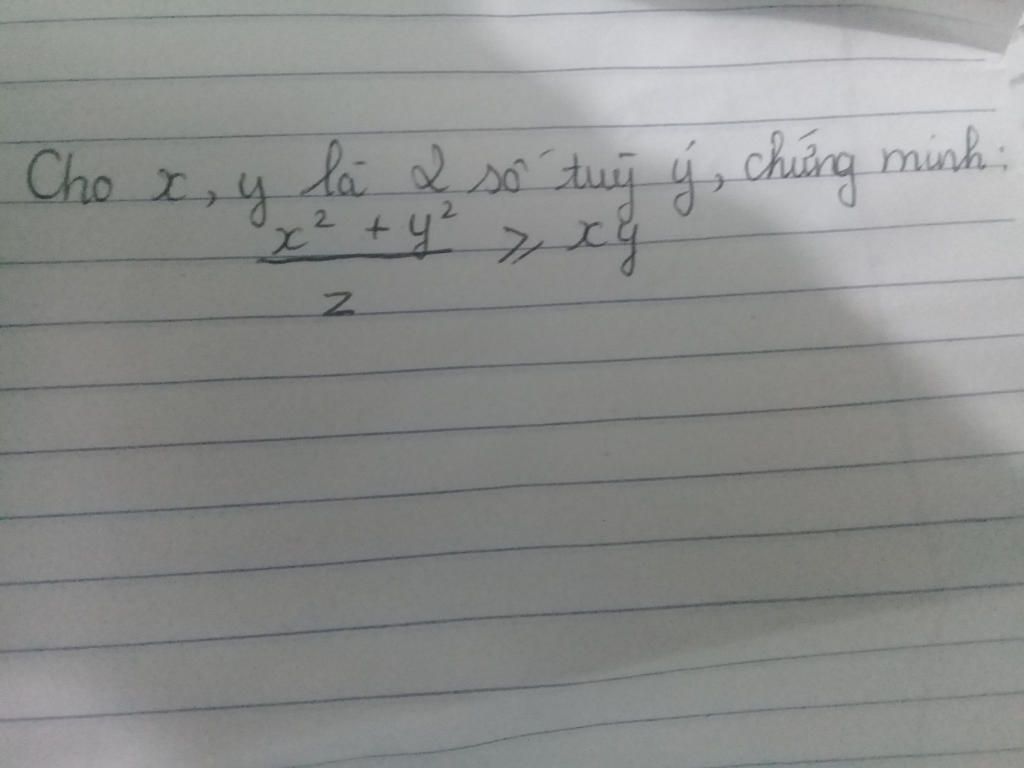 Cho x, y là 2 số tuỳ ý, chứng minh:
x² + y² ⩾ xy
2